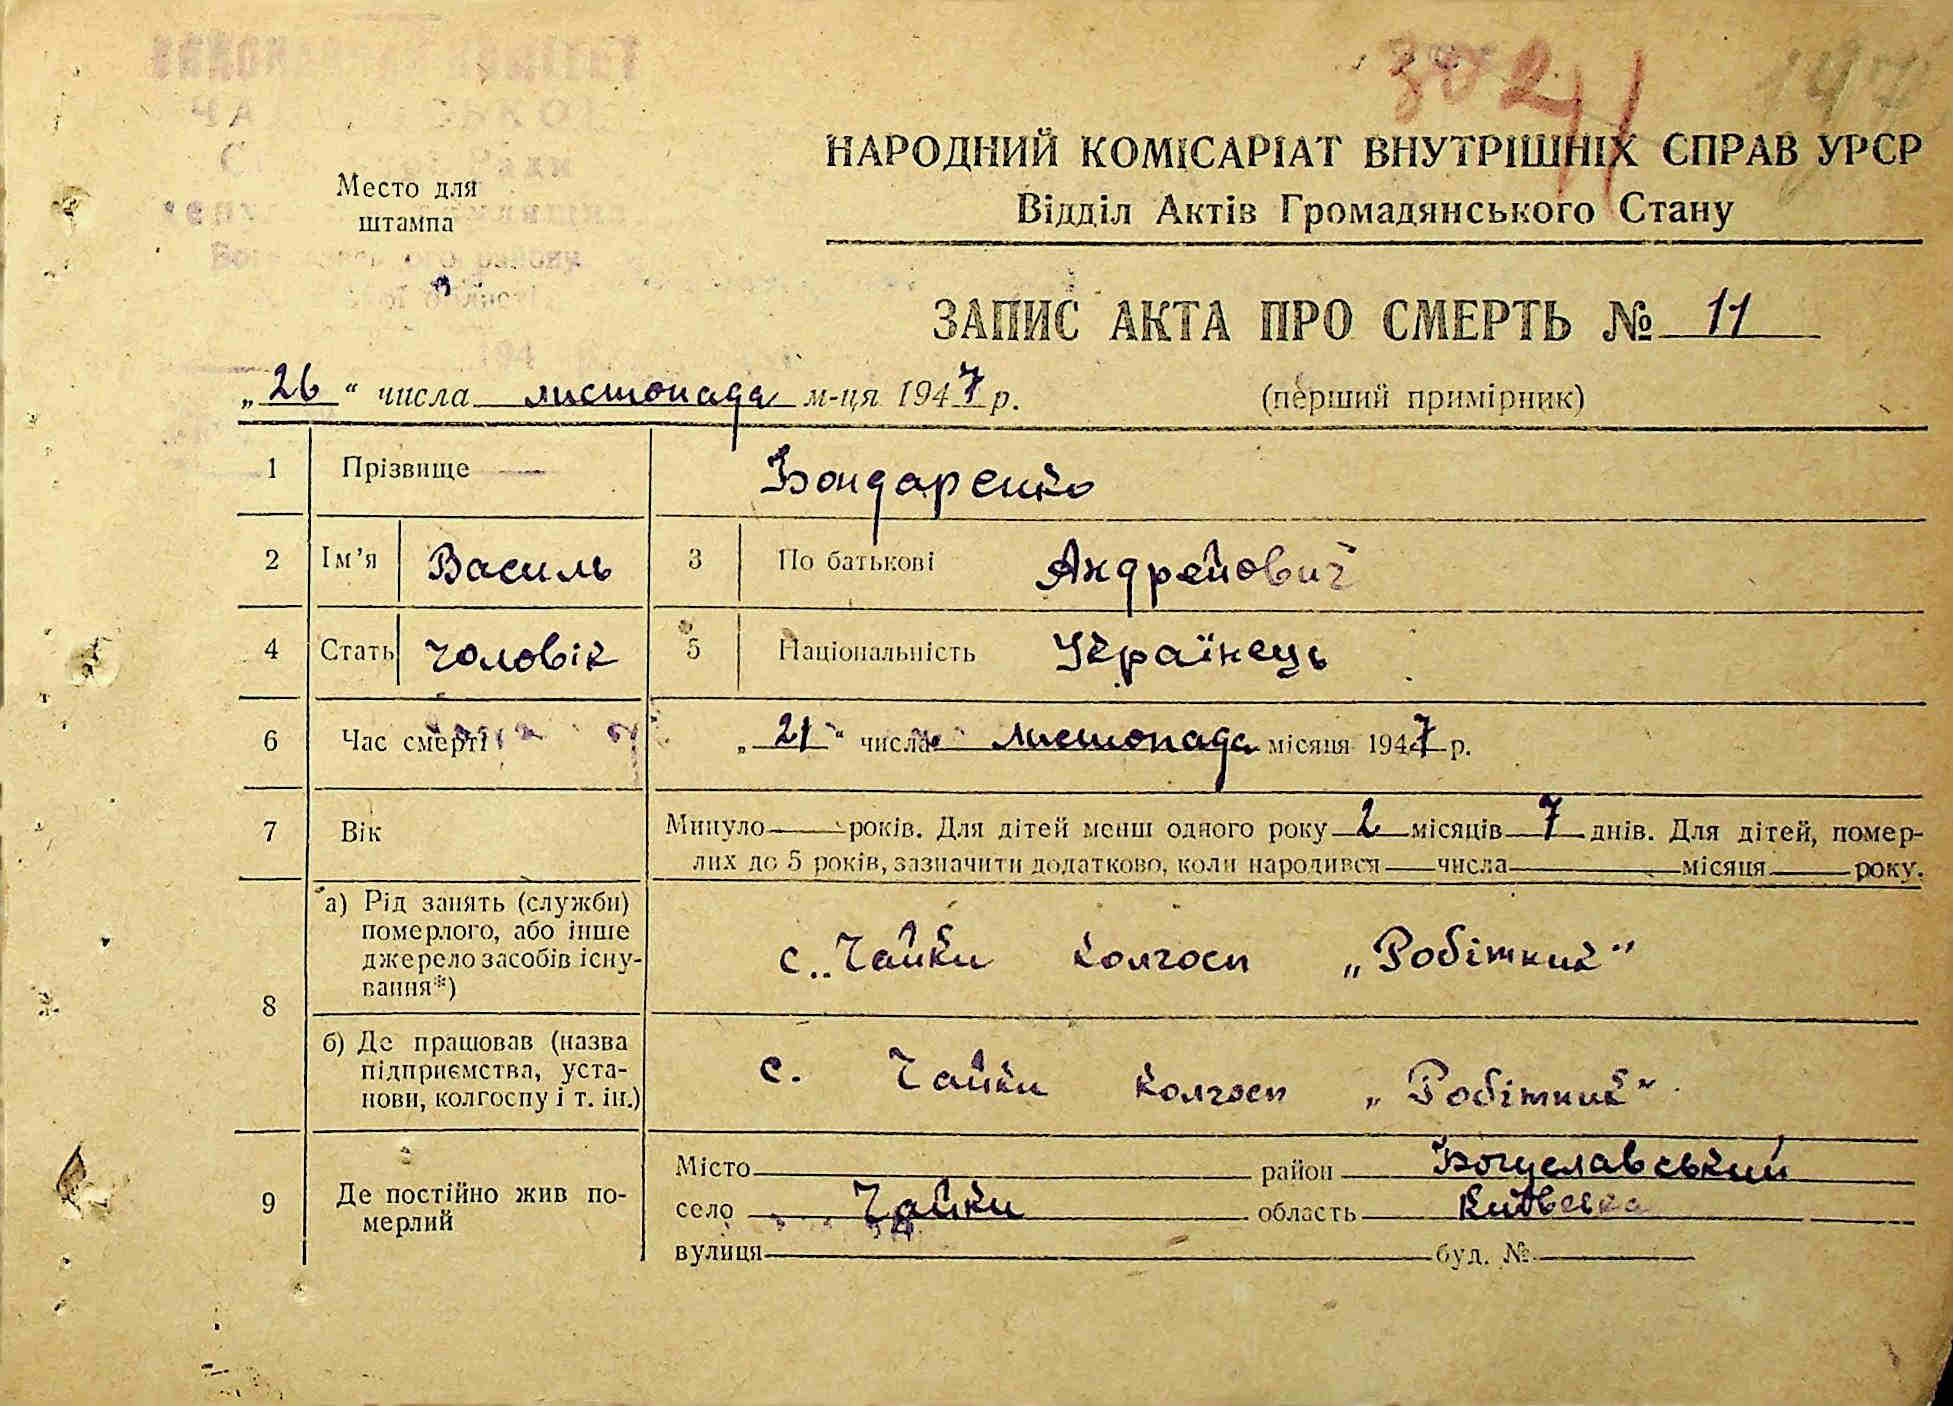 302
НАРОДНИЙ КОМІСАРІАТ ВНУТРІШНІХ СПРАВ УРСР
Відділ Актів Громадянського Стану
Место для
штампа
ЗАПИС АКТА ПРО СМЕРТЬ № 11
„26“ числа листопада м-ця 1947 р. (перший примірник)
1 Прізвище Бондаренко
2 Ім'я Василь 3 По батькові Андрейович
4 Стать чоловік 5 Національність Українець
6 Час смерті „21“ числа листопада місяця 1947 р.
7 Вік Минуло років. Для дітей менш одного року 2 місяців 7 днів. Для дітей, помер-
лих до 5 років, зазначити додатково, коли народився числа місяця року.
8 а) Рід занять (служби)
померлого, або інше
джерело засобів існу-
вання*)
с. Чайки колгосп „Робітник“
б) Де працював (назва
підприємства, уста-
нови, колгоспу і т. ін.)
с. Чайки колгосп „Робітник“
9 Де постійно жив по-
мерлий
Місто район Богуславський
село Чайки область Київська
вулиця буд. №